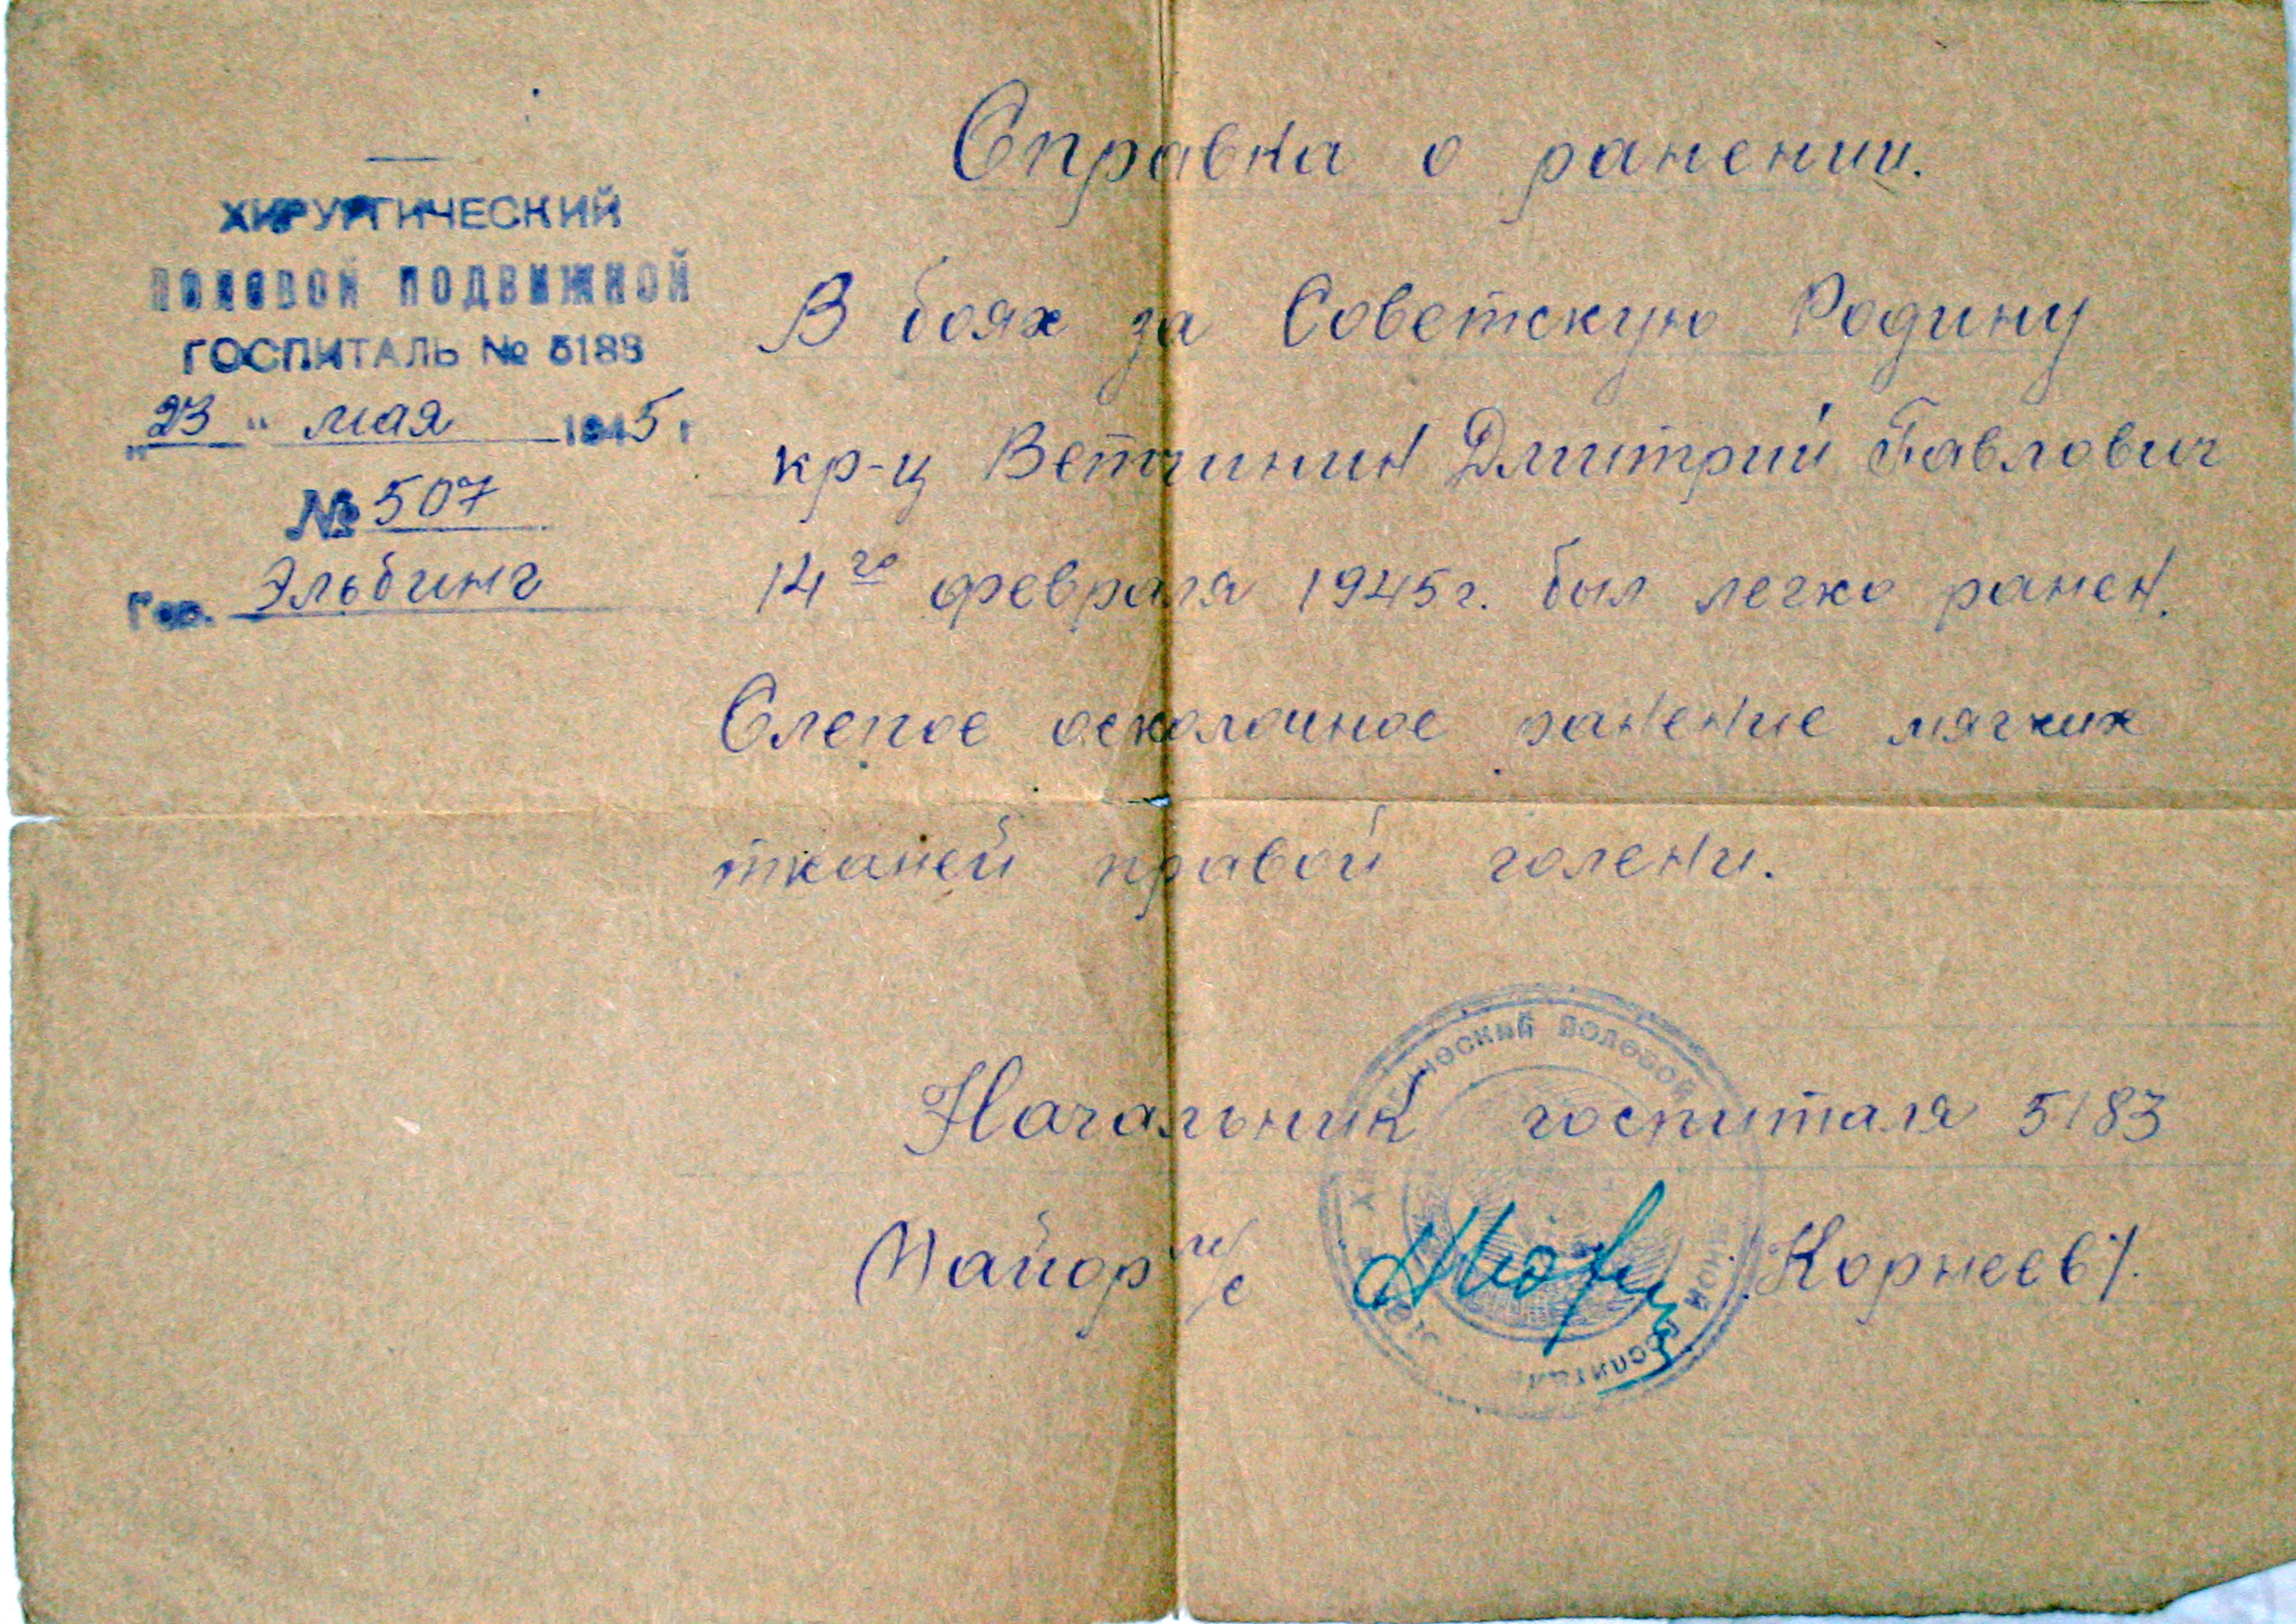 ХИРУРГИЧЕСКИЙ
ПОЛЕВОЙ ПОДВИЖНОЙ
ГОСПИТАЛЬ № 5183
„23" мая 1945 г
№ 507
Гор. Эльбинг
Справка о ранении.
В боях за Советскую Родину
кр-ц Ветчинин Дмитрий Павлович
14го февраля 1945г. был легко ранен.
Слепое осколочное ранение мягких
тканей правой голени.
Начальник госпиталя 5183
Майор м/с /Корнеев/.
ПОЛЕВОЙ